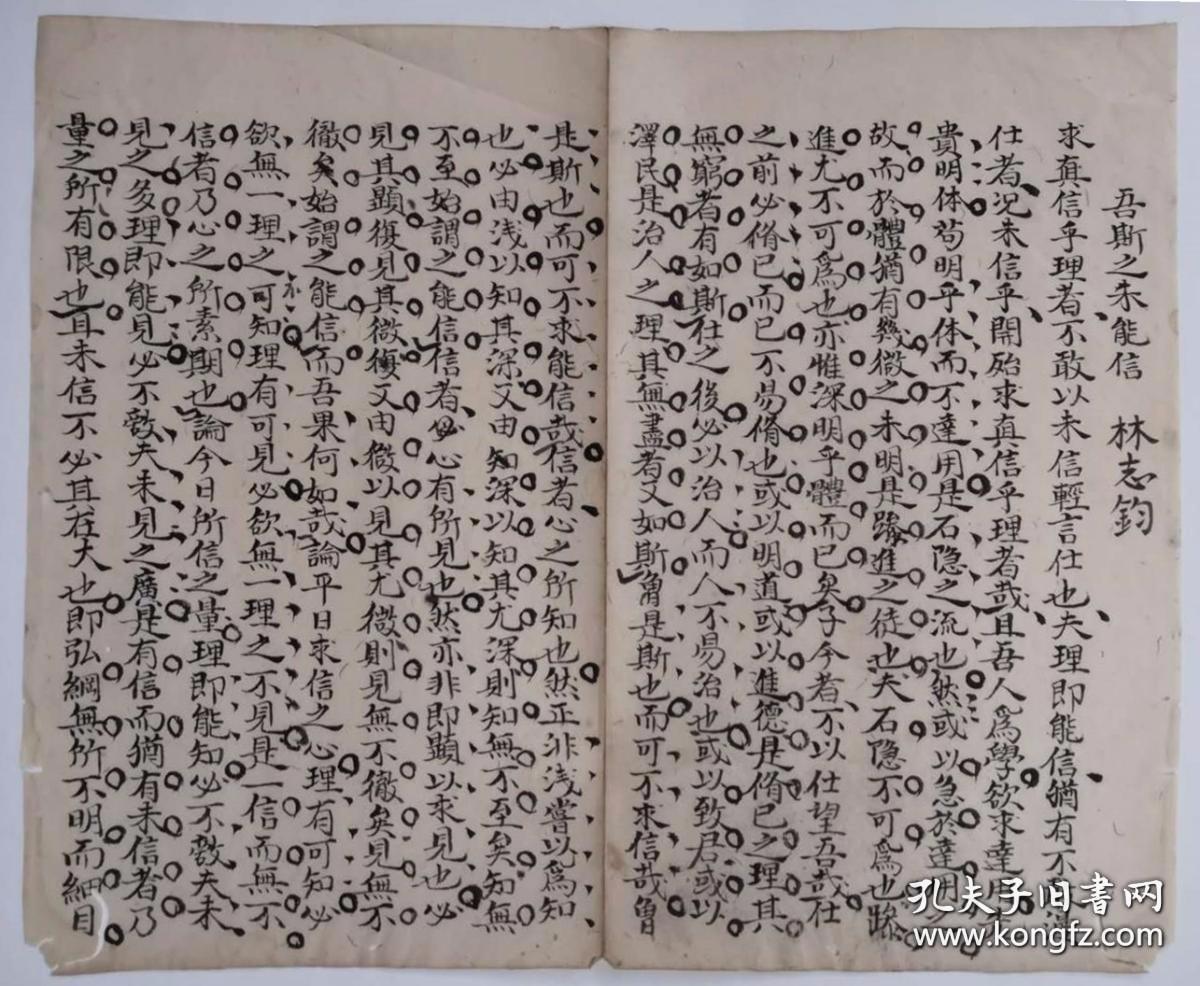 吾斯之未能信 林志鈞
求真信乎理者不敢以未信輕言仕也夫理即能信猶有不
仕者況未信乎開始求真信乎理者哉且吾人為學欲求達用
貴明体苟明乎体而不達用是石隐之流也然或以急於達用之
故而於體猶有幾微之未明是躁進之徒也夫石隐不可為也躁
進尤不可為也亦惟深明乎體而已矣子今者不以仕望吾哉仕
之前必脩已而已不易脩也或以明道或以進德是脩已之理其
無窮者有如斯仕之後必以治人而人不易治也或以致君或以
澤民是治人之理其無盡者又如斯是斯也而可不求信哉
是斯也而可不求能信哉信者心之所知也然正非浅嘗以為知
也必由浅以知其深又由知深以知其尤深則知無不至矣知無
不至始謂之能信信者必心有所見也然亦非即顯以求見也必
見其顯復見其微復又由微以見其尤微則見無不徹矣見無不
徹矣始謂之能信而吾果何如哉論平日求信之心理有可知必
欲無一理之不可知理有可見必欲無一理之不見是一信而無不
信者乃心之所素期也論今日所信之量理即能知必不敵夫未
見之多理即能見必不敵夫未見之廣是有信而猶有未信者乃
量之所有限也且未信不必其在大也即弘綱無所不明而細目
孔夫子旧书网
www.kongfz.com